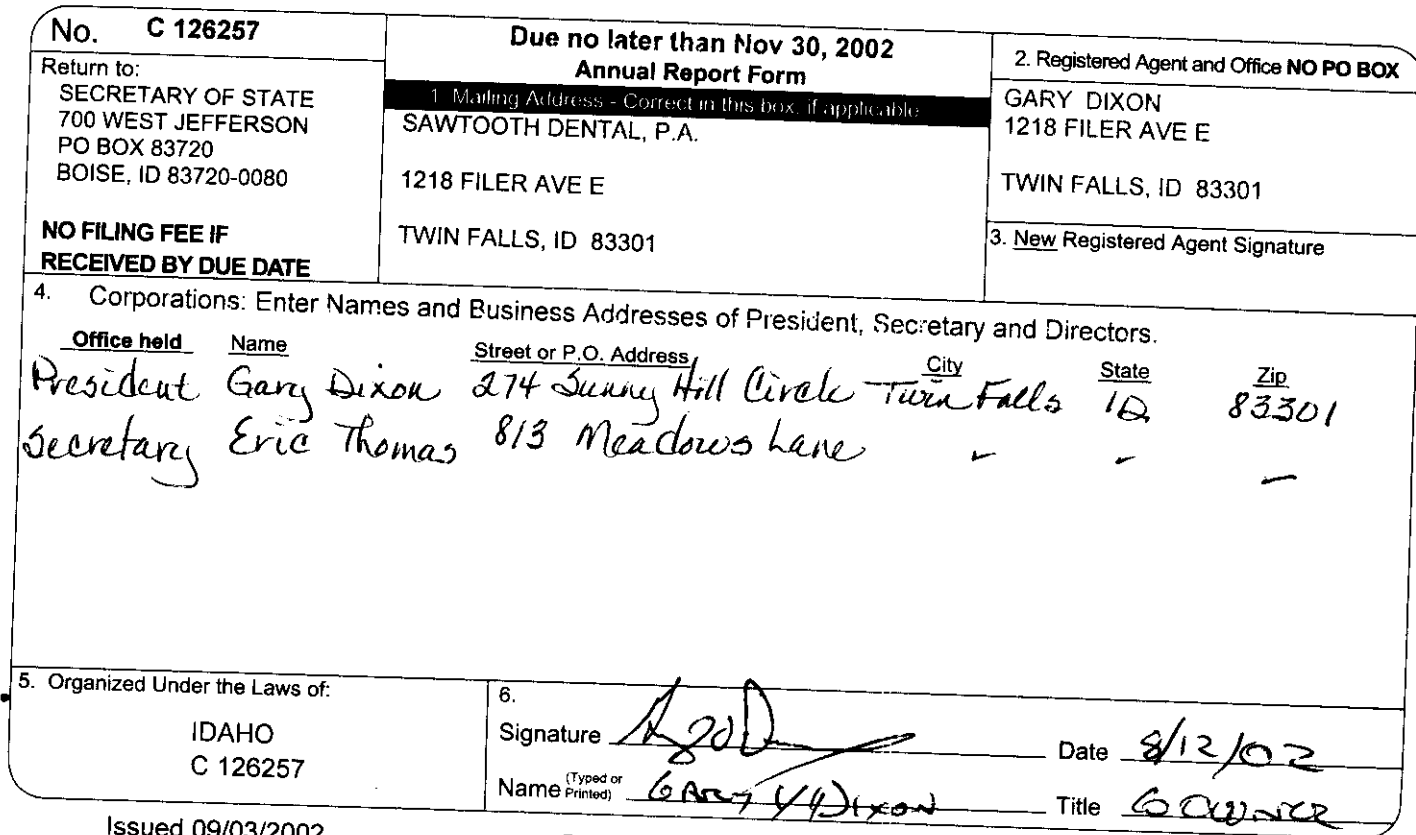 No. C 126257
Return to:
SECRETARY OF STATE
700 WEST JEFFERSON
PO BOX 83720
BOISE, ID 83720-0080
NO FILING FEE IF
RECEIVED BY DUE DATE
Due no later than Nov 30, 2002
Annual Report Form
1. Mailing Address - Correct in this box, if applicable
SAWTOOTH DENTAL, P.A.
1218 FILER AVE E
TWIN FALLS, ID 83301
2. Registered Agent and Office NO PO BOX
GARY DIXON
1218 FILER AVE E
TWIN FALLS, ID 83301
3. New Registered Agent Signature
4. Corporations: Enter Names and Business Addresses of President, Secretary and Directors.
Office held Name Street or P.O. Address City State Zip
President Gary Dixon 274 Sunny Hill Circle Twin Falls ID 83301
Secretary Eric Thomas 813 Meadows Lane
5. Organized Under the Laws of:
IDAHO
C 126257
6.
Signature Date 8/12/02
Name (Typed or Printed) GARY DIXON Title
Issued 09/03/2002